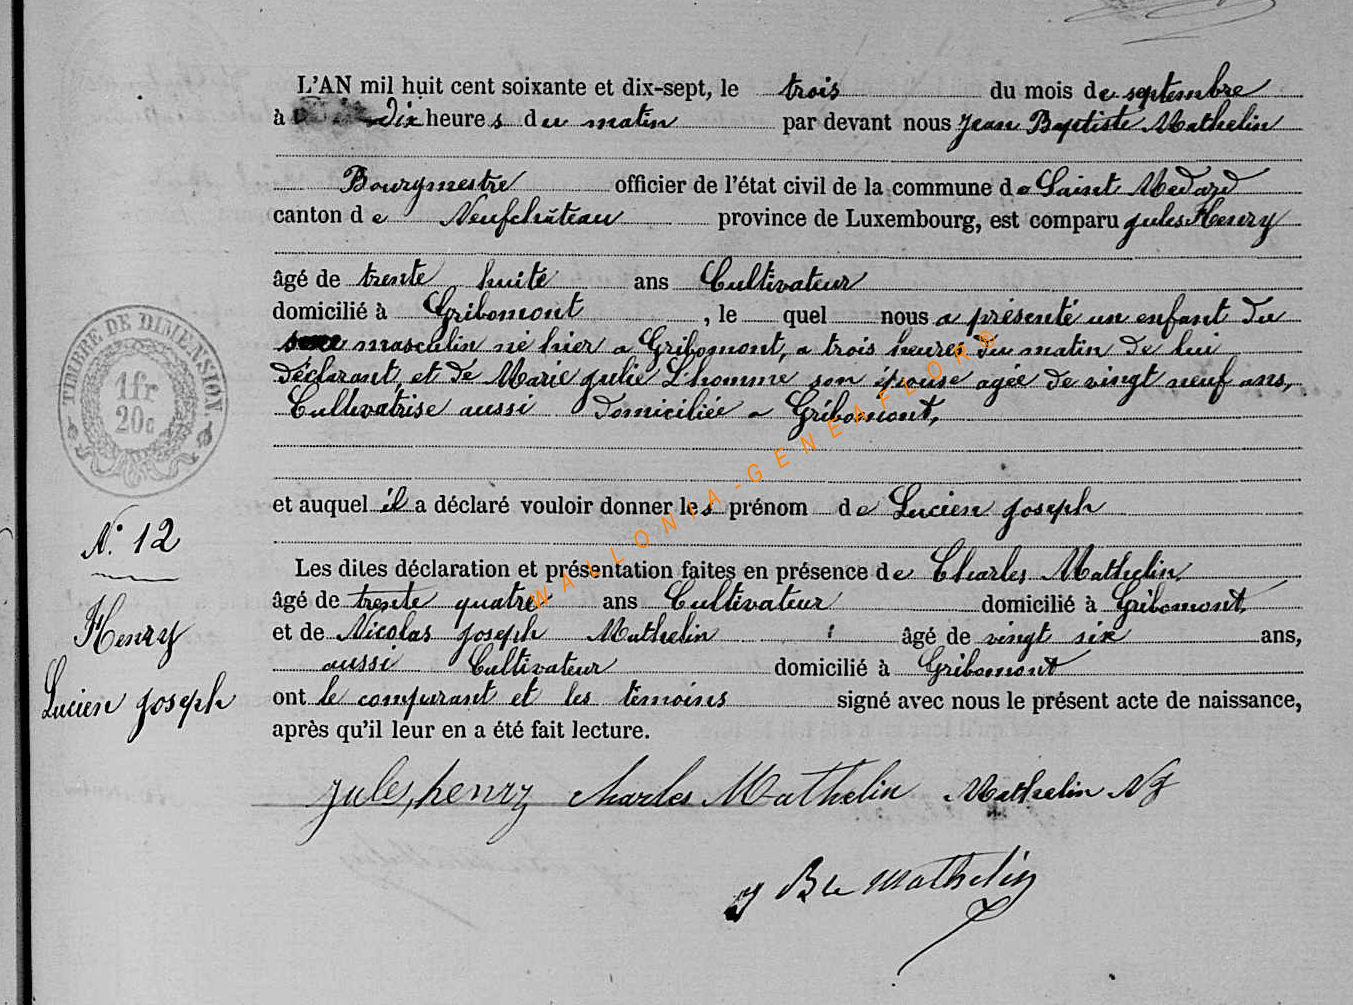 L'AN mil huit cent soixante et dix-sept, le trois du mois de septembre
à dix heures du matin par devant nous Jean Baptiste Mathelin
Bourgmestre officier de l'état civil de la commune de Saint Medard
canton de Neufchâteau province de Luxembourg, est comparu jules Henry
âgé de trente huite ans Cultivateur
domicilié à Gribomont, le quel nous a présenté un enfant du
sexe masculin né hier a Gribomont, a trois heures du matin de lui
déclarant, et de Marie julie Lhomme son épouse agée de vingt neuf ans,
Cultivatrise aussi domiciliée a Gribomont,
et auquel il a déclaré vouloir donner les prénom de Lucien joseph
Les dites déclaration et présentation faites en présence de Charles Mathelin,
âgé de trente quatre ans Cultivateur domicilié à Gribomont,
et de Nicolas joseph Mathelin âgé de vingt six ans,
aussi Cultivateur domicilié à Gribomont
ont le comparant et les témoins signé avec nous le présent acte de naissance,
après qu'il leur en a été fait lecture.
TIMBRE DE DIMENSION.
1fr
20c
N° 12
Henry
Lucien joseph
jules henry Charles Mathelin Mathelin NJ
J Bte Mathelin
WALLONIA-GENEAFLORE